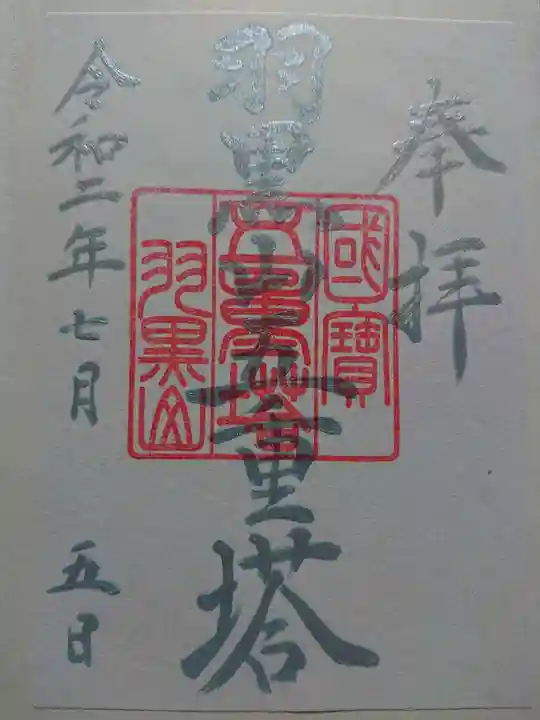 奉拝
羽黒山五重塔
國寶
五重塔
羽黒山
令和二年七月五日